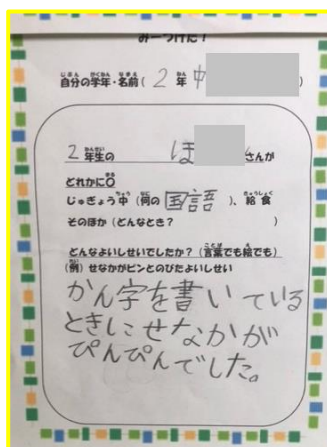 みーつけた！
自分の学年・名前（ 2 年 中 ）
2 年生の ほ さんが
どれかに○
じゅぎょう中（何の 国語 ）、給食
そのほか（どんなとき？ ）
どんなよいしせいでしたか？（言葉でも絵でも）
（例）せなかがピンとのびたよいしせい
かん字を書いている
ときにせなかが
ぴんぴんでした。